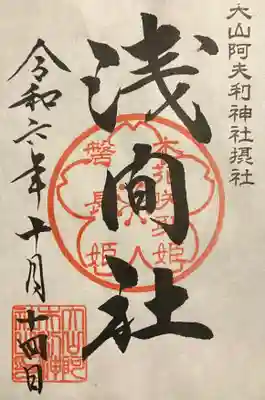 大山阿夫利神社摂社
浅間社
木花咲耶姫
磐長姫
令和六年十月十四日